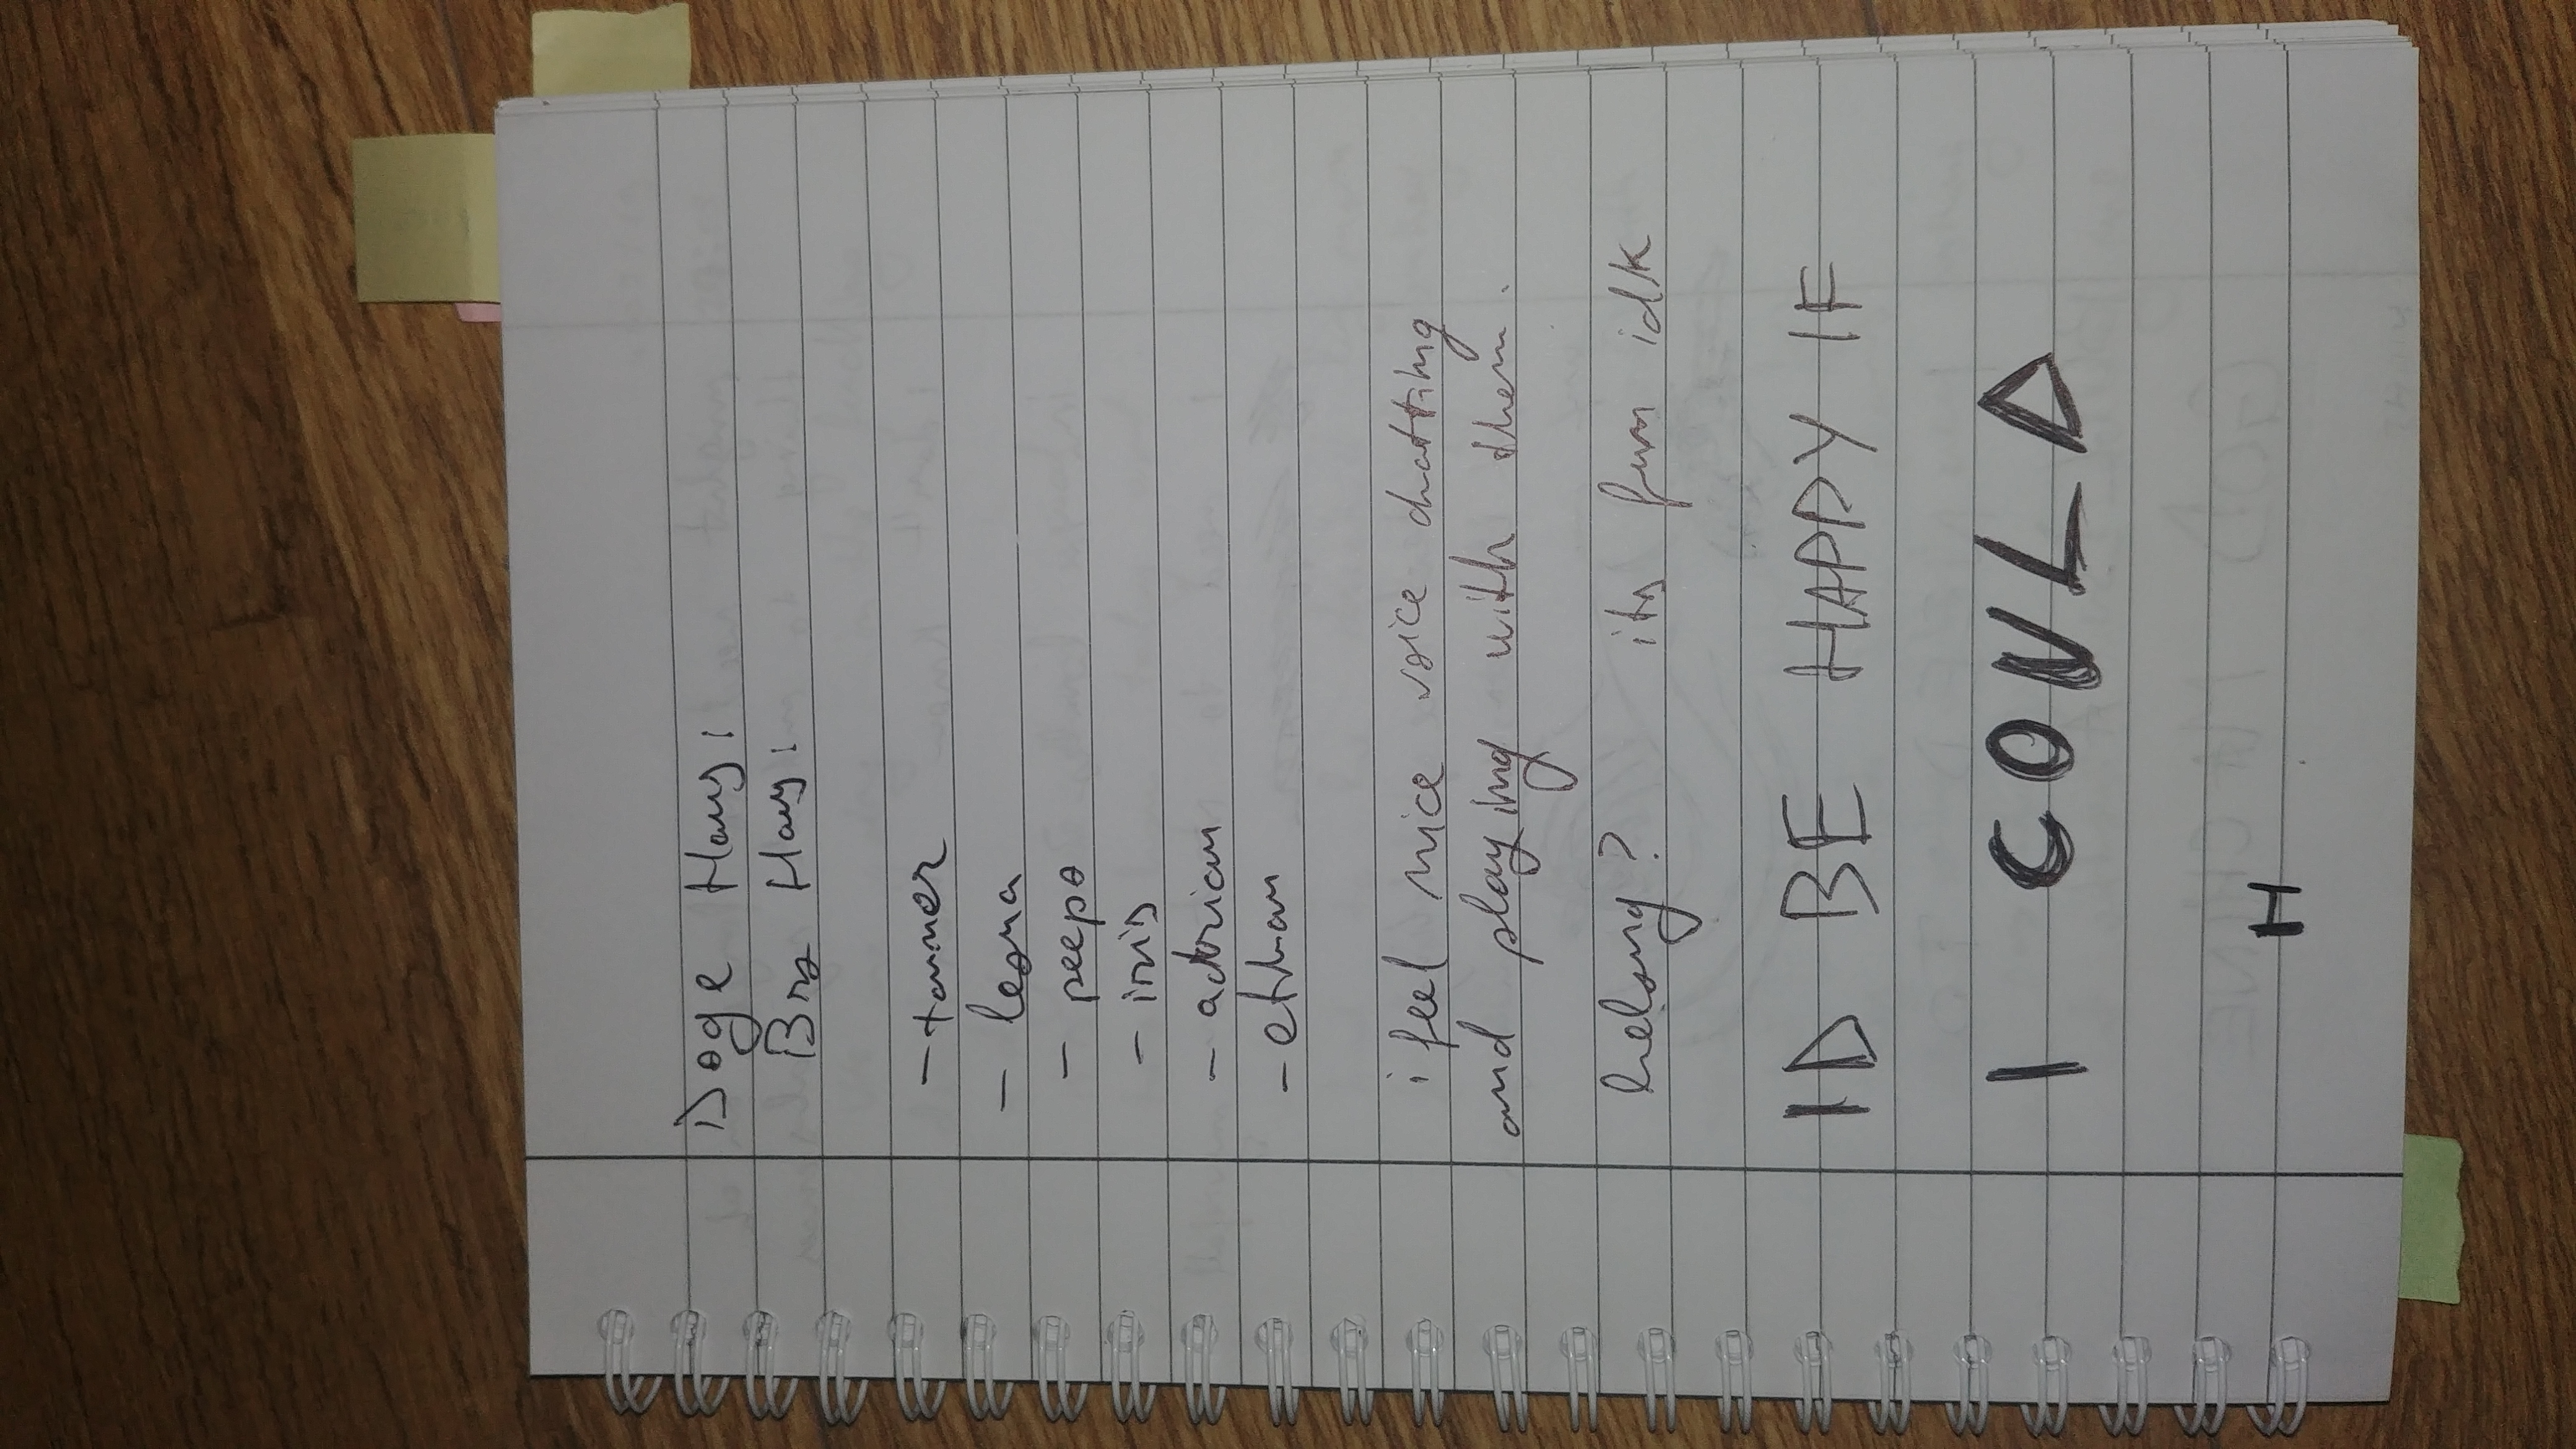 Doge Haus:
Bro Haus:
- tanner
- leona
- peepo
- iris
- adrian
- ethan
i feel nice voice chatting
and playing with them.
belong? its fun idk
ID BE HAPPY IF
I COULD
H